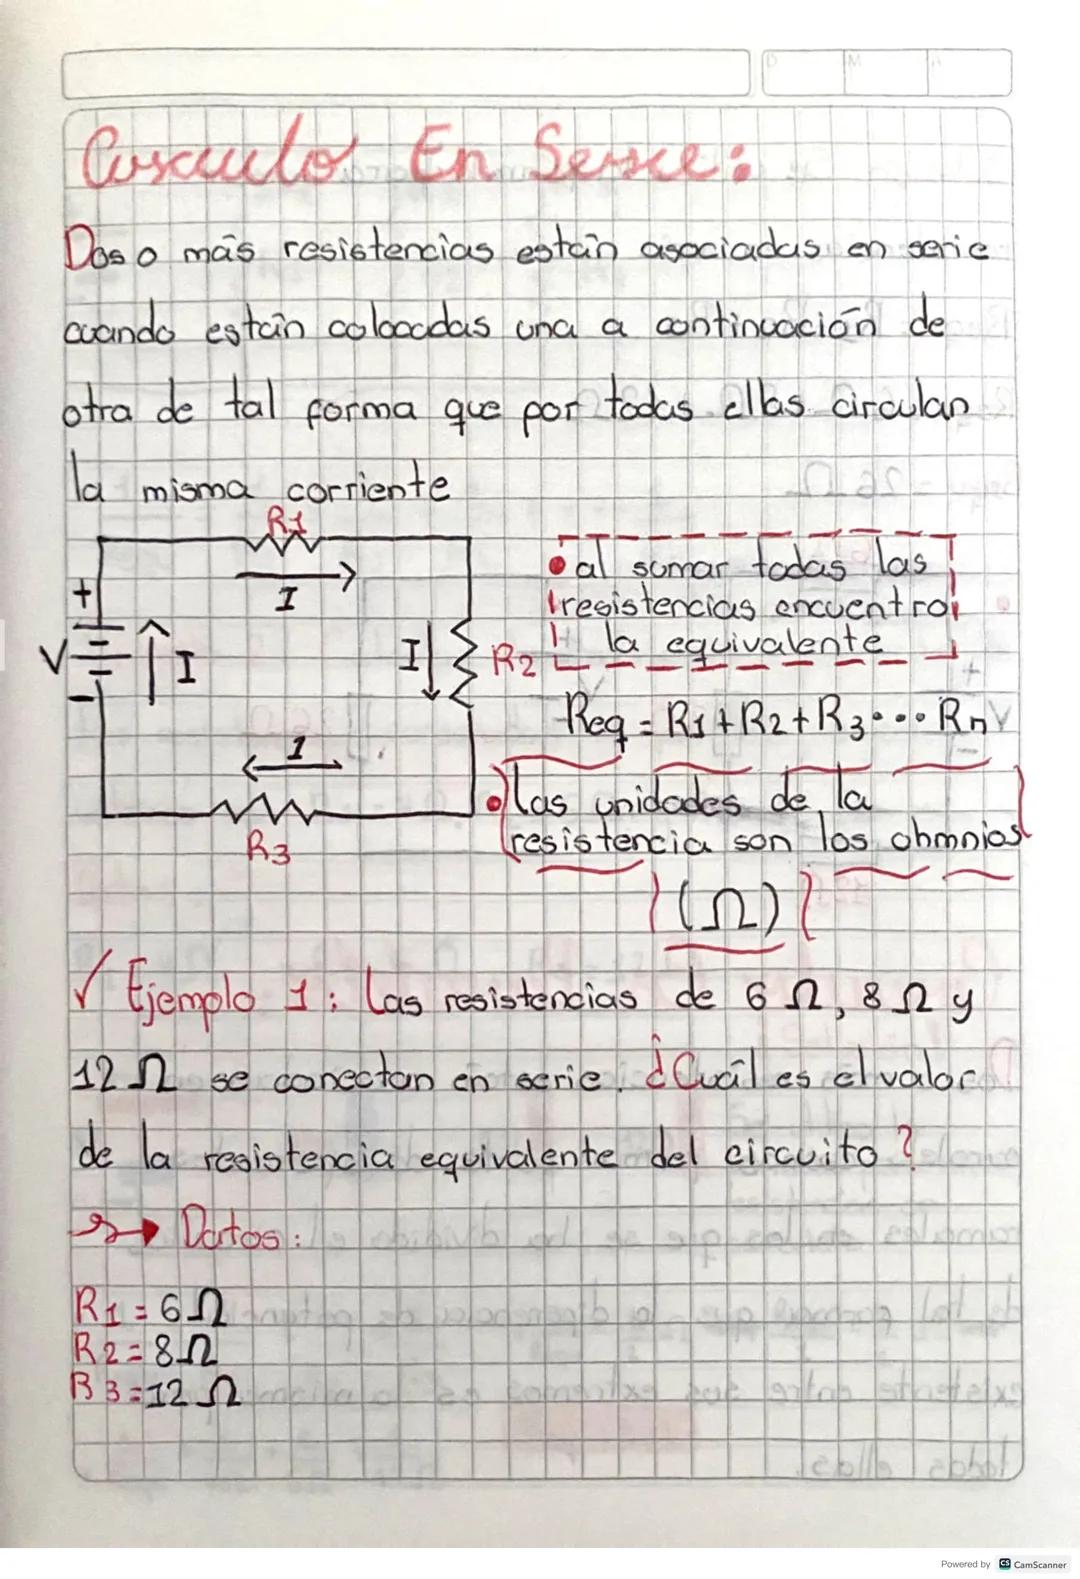 Circuito En Serie:
Dos o más resistencias están asociadas en serie
cuando están colocadas una a continuación de
otra de tal forma que por todas ellas circulan
la misma corriente
R1
I
+
V
-
I
I
R2
I
R3
• al sumar todas las
resistencias encuentro
la equivalente
Req = R1 + R2 + R3 ... Rn
• las unidades de la
resistencia son los ohmnios
(Ω)
✓ Ejemplo 1: Las resistencias de 6 Ω, 8 Ω y
12 Ω se conectan en serie. ¿Cuál es el valor
de la resistencia equivalente del circuito?
Datos:
R1 = 6 Ω
R2 = 8 Ω
R3 = 12 Ω
Powered by CS CamScanner